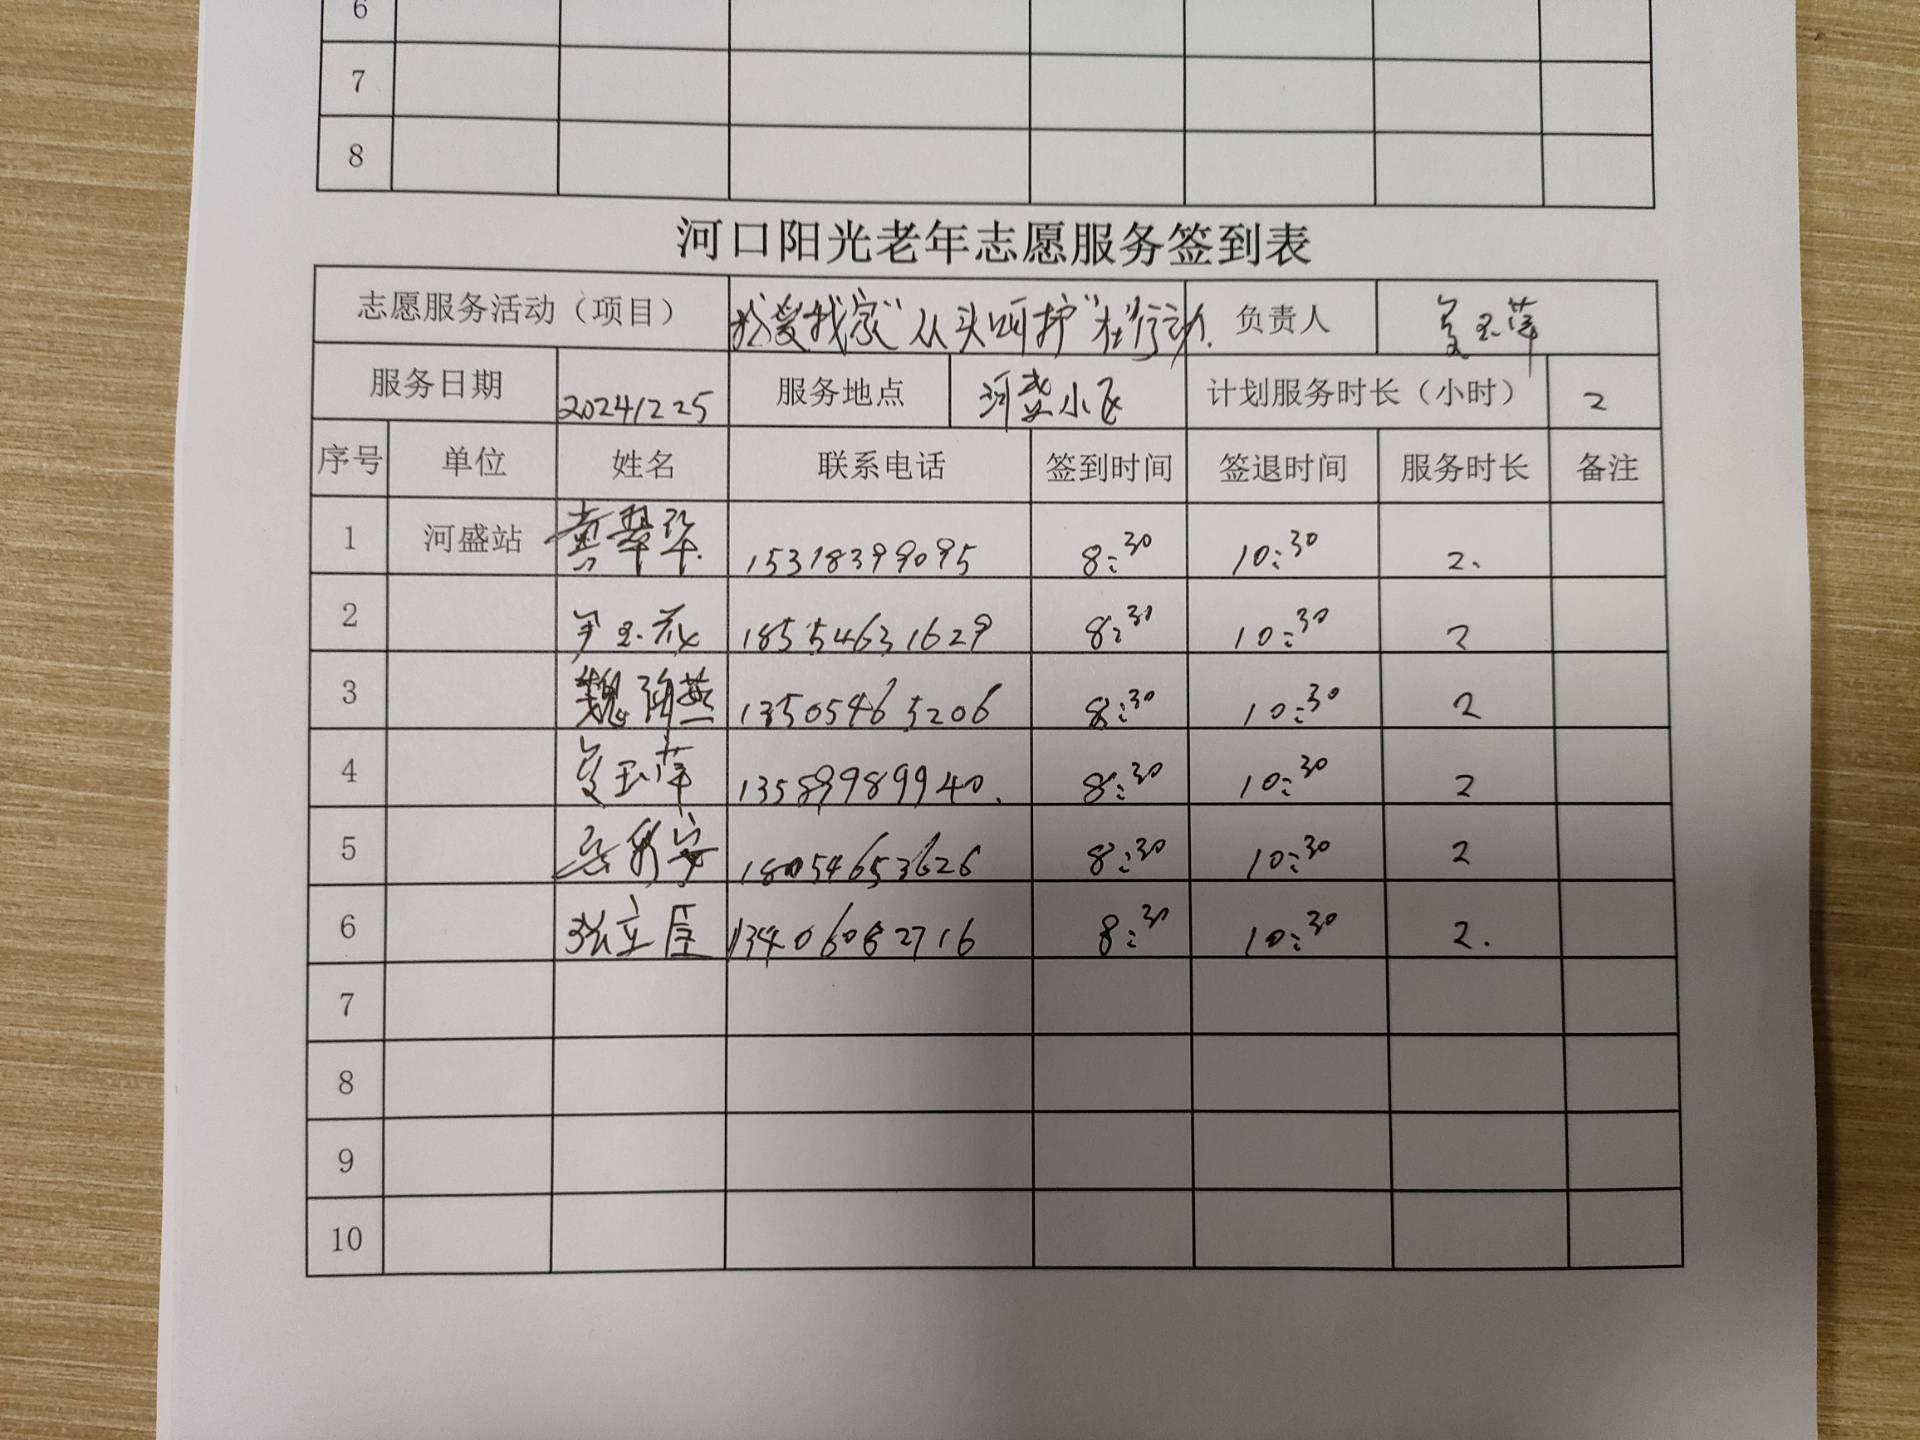 6
7
8
河口阳光老年志愿服务签到表
志愿服务活动（项目） 我爱我家"从头呵护"在行动. 负责人
服务日期 20241225 服务地点 河 小区 计划服务时长（小时） 2
序号 单位 姓名 联系电话 签到时间 签退时间 服务时长 备注
1 河盛站 黄翠华 15318399095 8:30 10:30 2.
2 18554631629 8:30 10:30 2
3 魏 燕 13505465206 8:30 10:30 2
4 玉萍 13589989940. 8:30 10:30 2
5 18054653626 8:30 10:30 2
6 张立 13406082716 8:30 10:30 2.
7
8
9
10